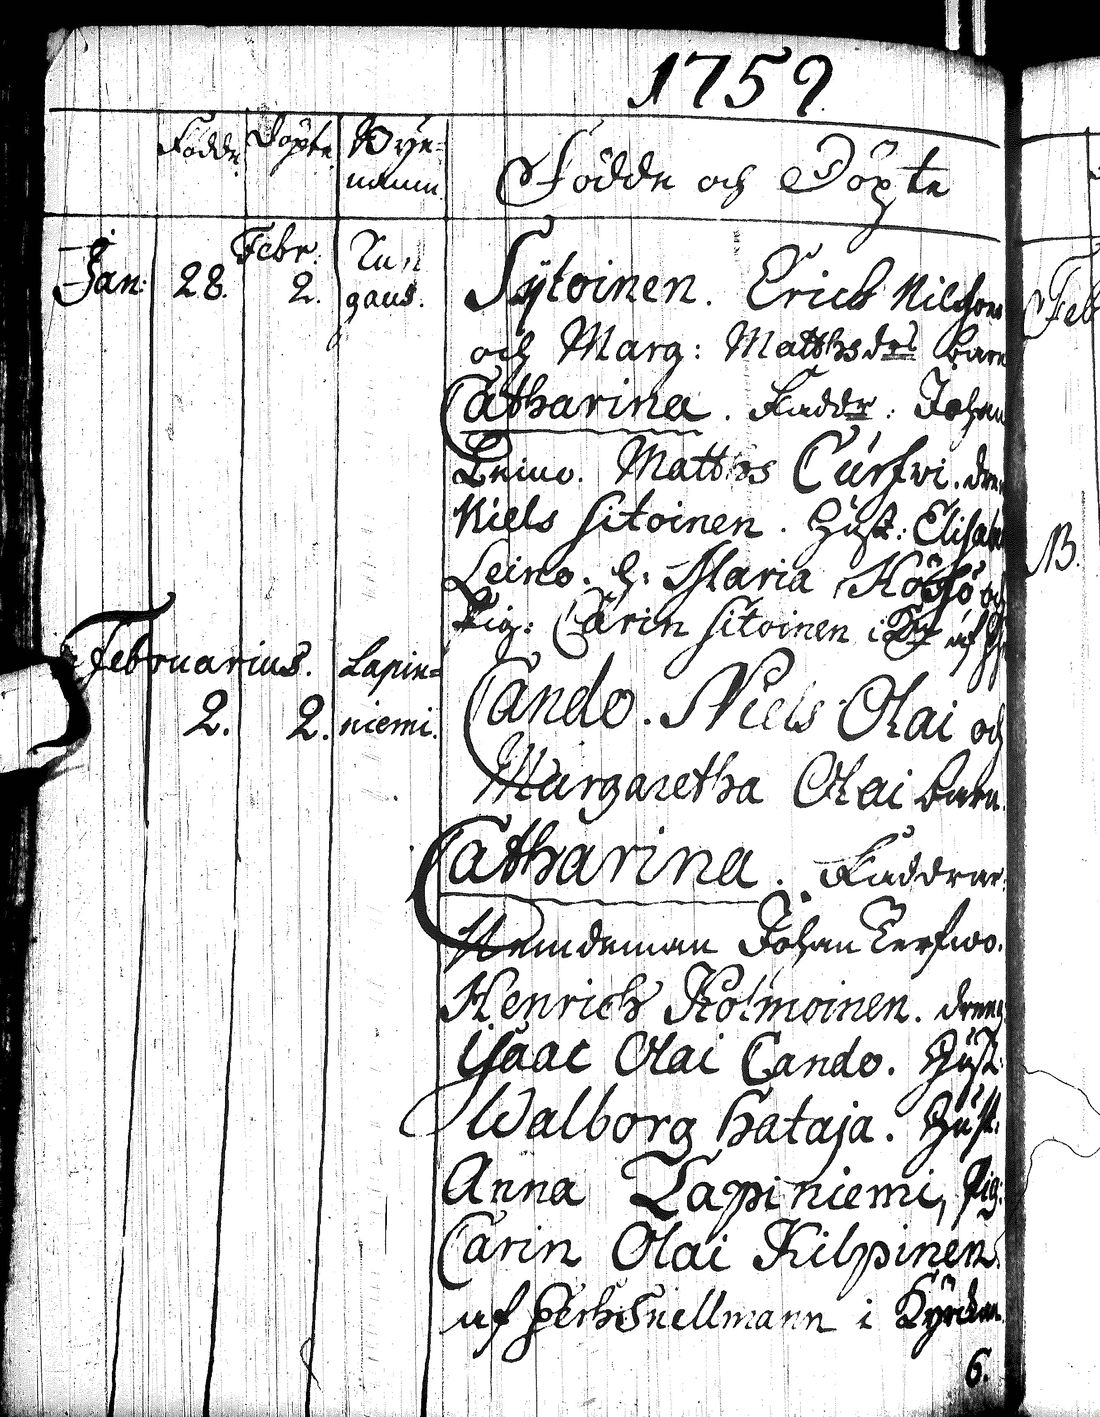 1759.
Födde Döpte Bye=
namn
Födde och Döpte
Jan: 28. Febr. 2. Kan
gaus.
Sytoinen. Erich Nilsson
och Marg: Matthsdrs barn
Catharina. Faddr: Johan
Leino. Matths Cursvi. dren
Niels Sitoinen. Hust: Elisabe
Leino. H: Maria och
Pig: Carin Sitoinen i af
Februarius. Lapin=
2. 2. niemi.
Cando. Niels Olai och
Margaretha Olai barn
Catharina. Faddrar
Nemdeman Johan Kerfwo.
Henrich Kolmoinen. dreng
Isaac Olai Cando. Hust:
Walborg Hataja. Hust.
Anna Lapiniemi, Pig:
Carin Olai Kilpinen.
af Pehr Snellmann i Kyrckan.
6.
Feb
B.